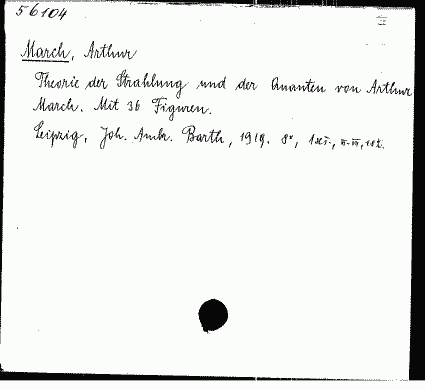 56104
March, Arthur
Theorie der Strahlung und der Quanten von Arthur
March. Mit 36 Figuren.
Leipzig, Joh. Ambr. Barth, 1919. 8°,